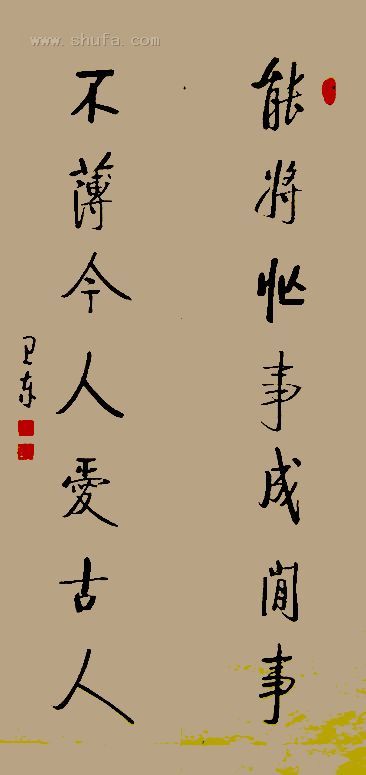 www.shufa.com
能将忙事成闲事
不薄今人愛古人
卫东